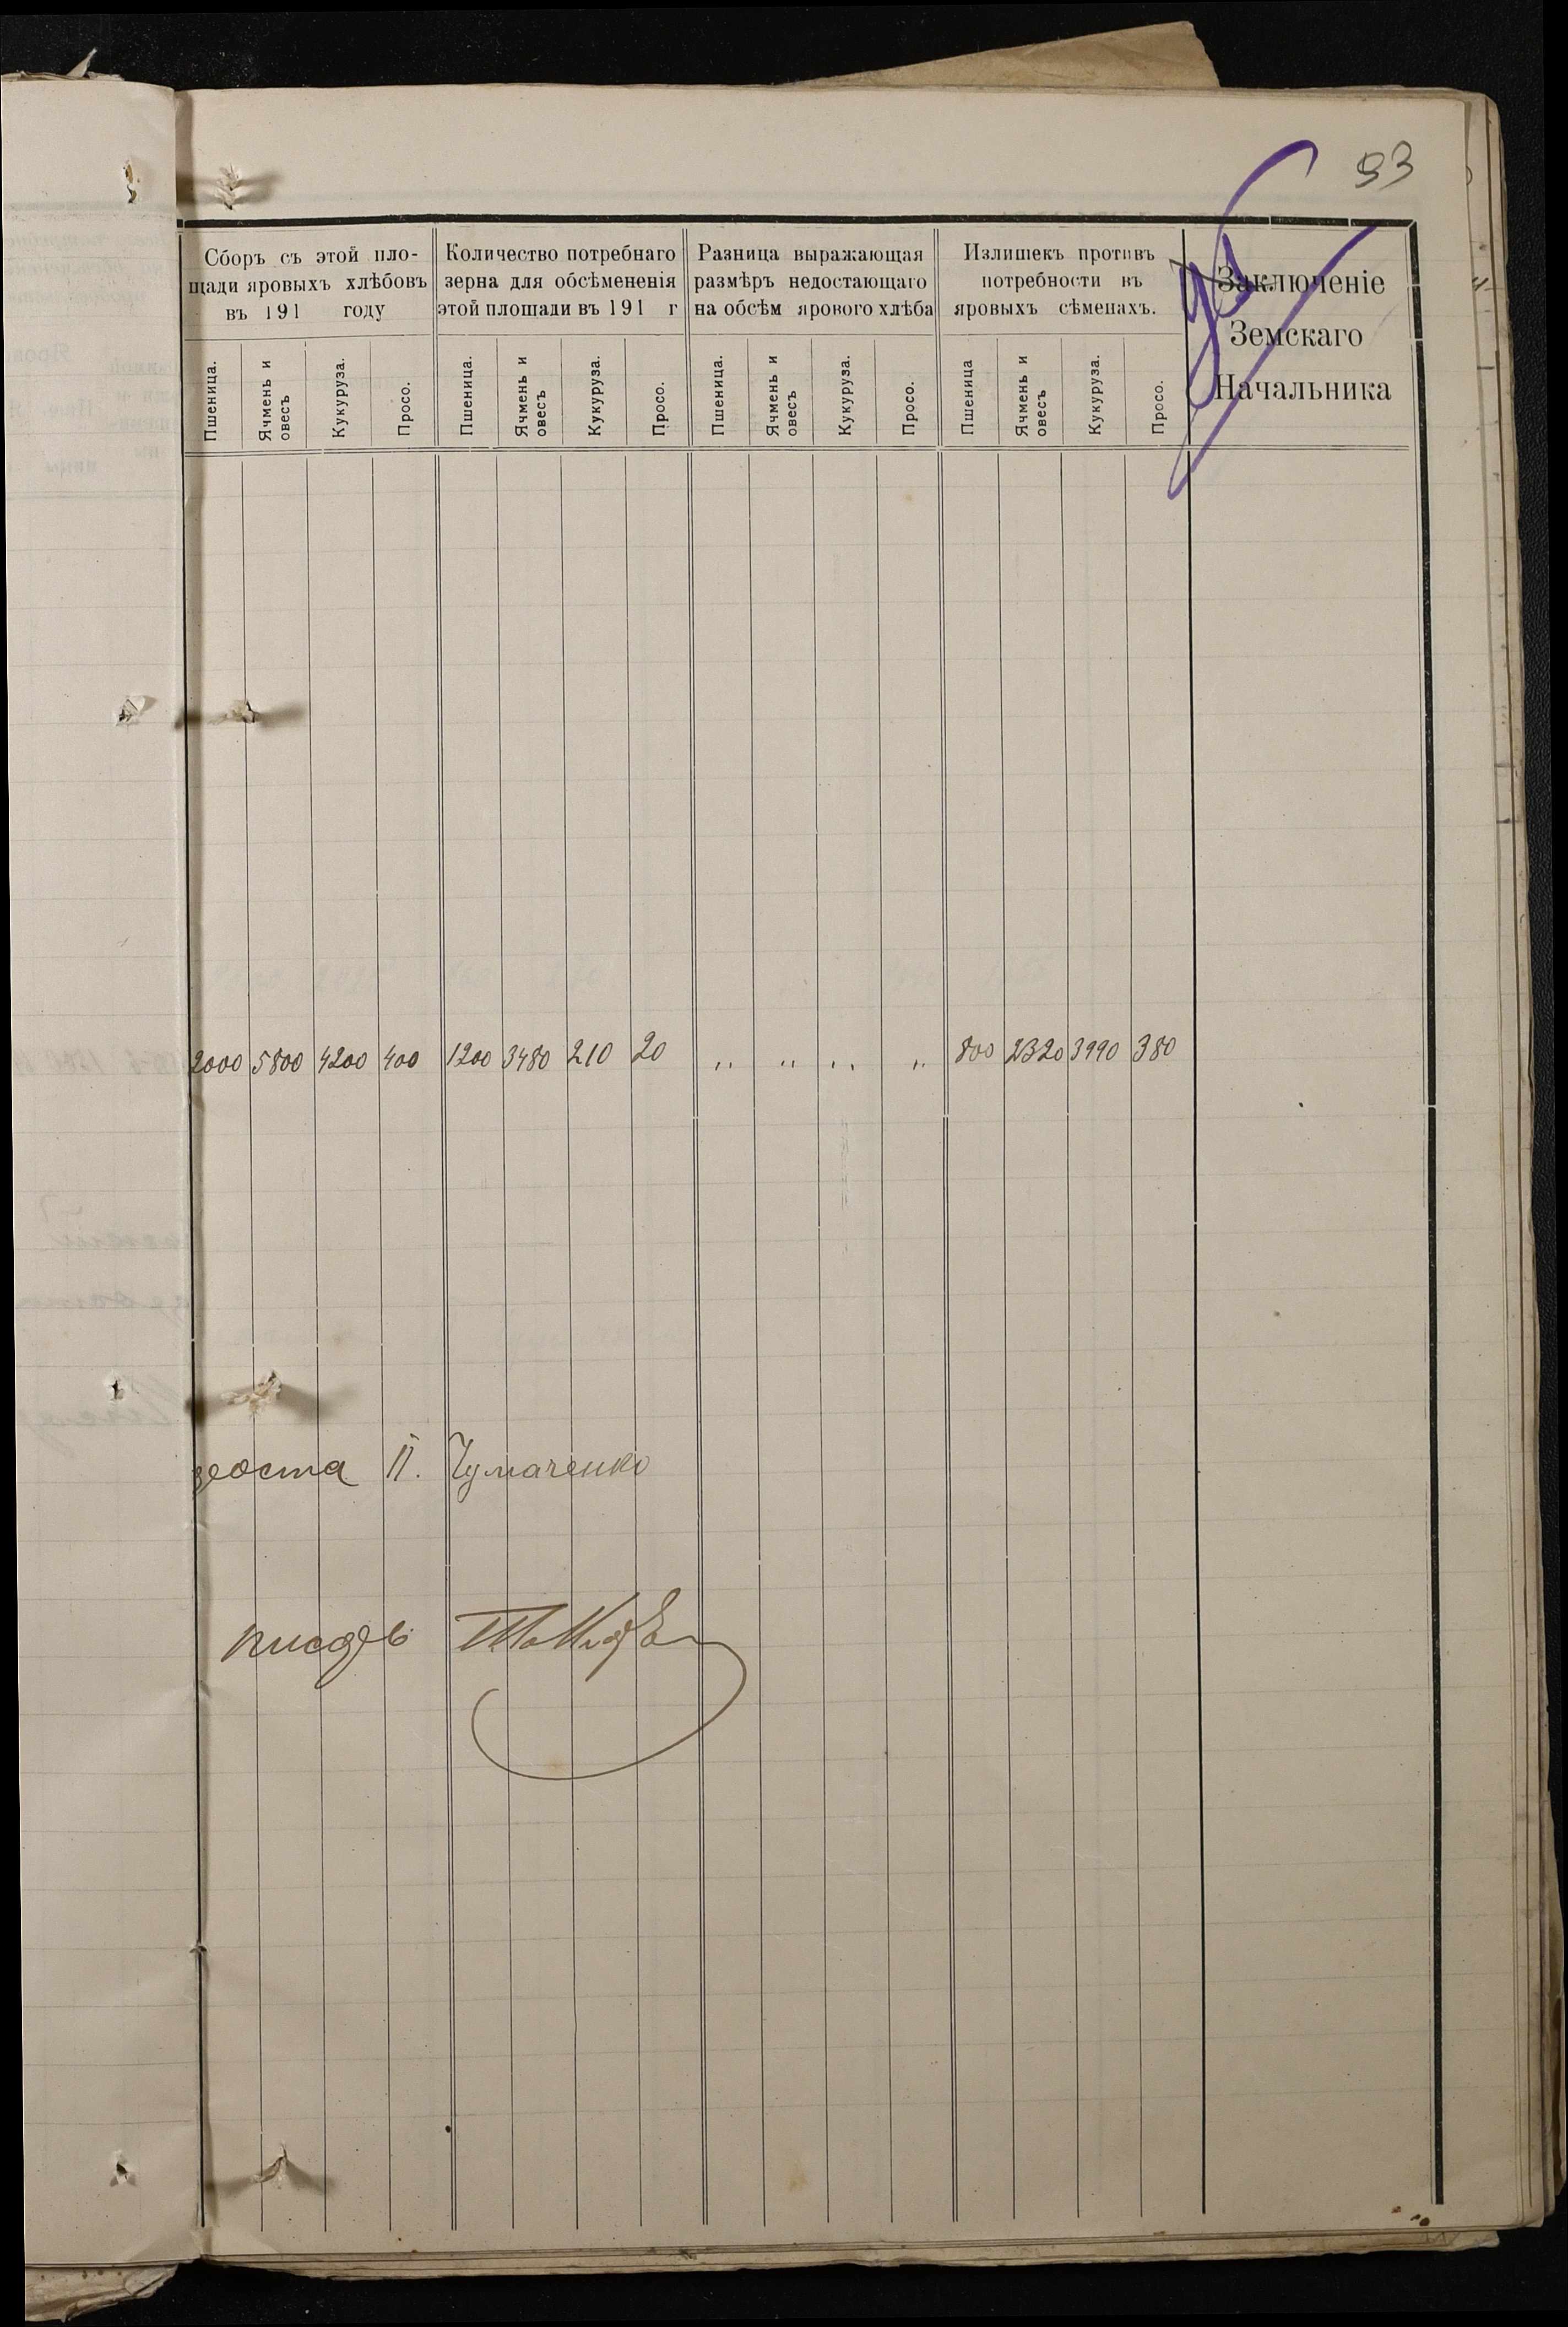 93
Сборъ съ этой пло-
щади яровыхъ хлѣбовъ
въ 191 году
Количество потребнаго
зерна для обсѣмененія
этой площади въ 191 г
Разница выражающая
размѣръ недостающаго
на обсѣм ярового хлѣба
Излишекъ противъ
потребности въ
яровыхъ сѣменахъ.
Заключеніе
Земскаго
Начальника
Пшеница. Ячмень и овесъ Кукуруза. Просо. Пшеница. Ячмень и овесъ Кукуруза. Просо. Пшеница. Ячмень и овесъ Кукуруза. Просо. Пшеница Ячмень и овесъ Кукуруза. Просо.
2000 5800 4200 400 1200 3480 210 20 " " " " 800 2320 3990 380
роста П. Чумаченко
писарь